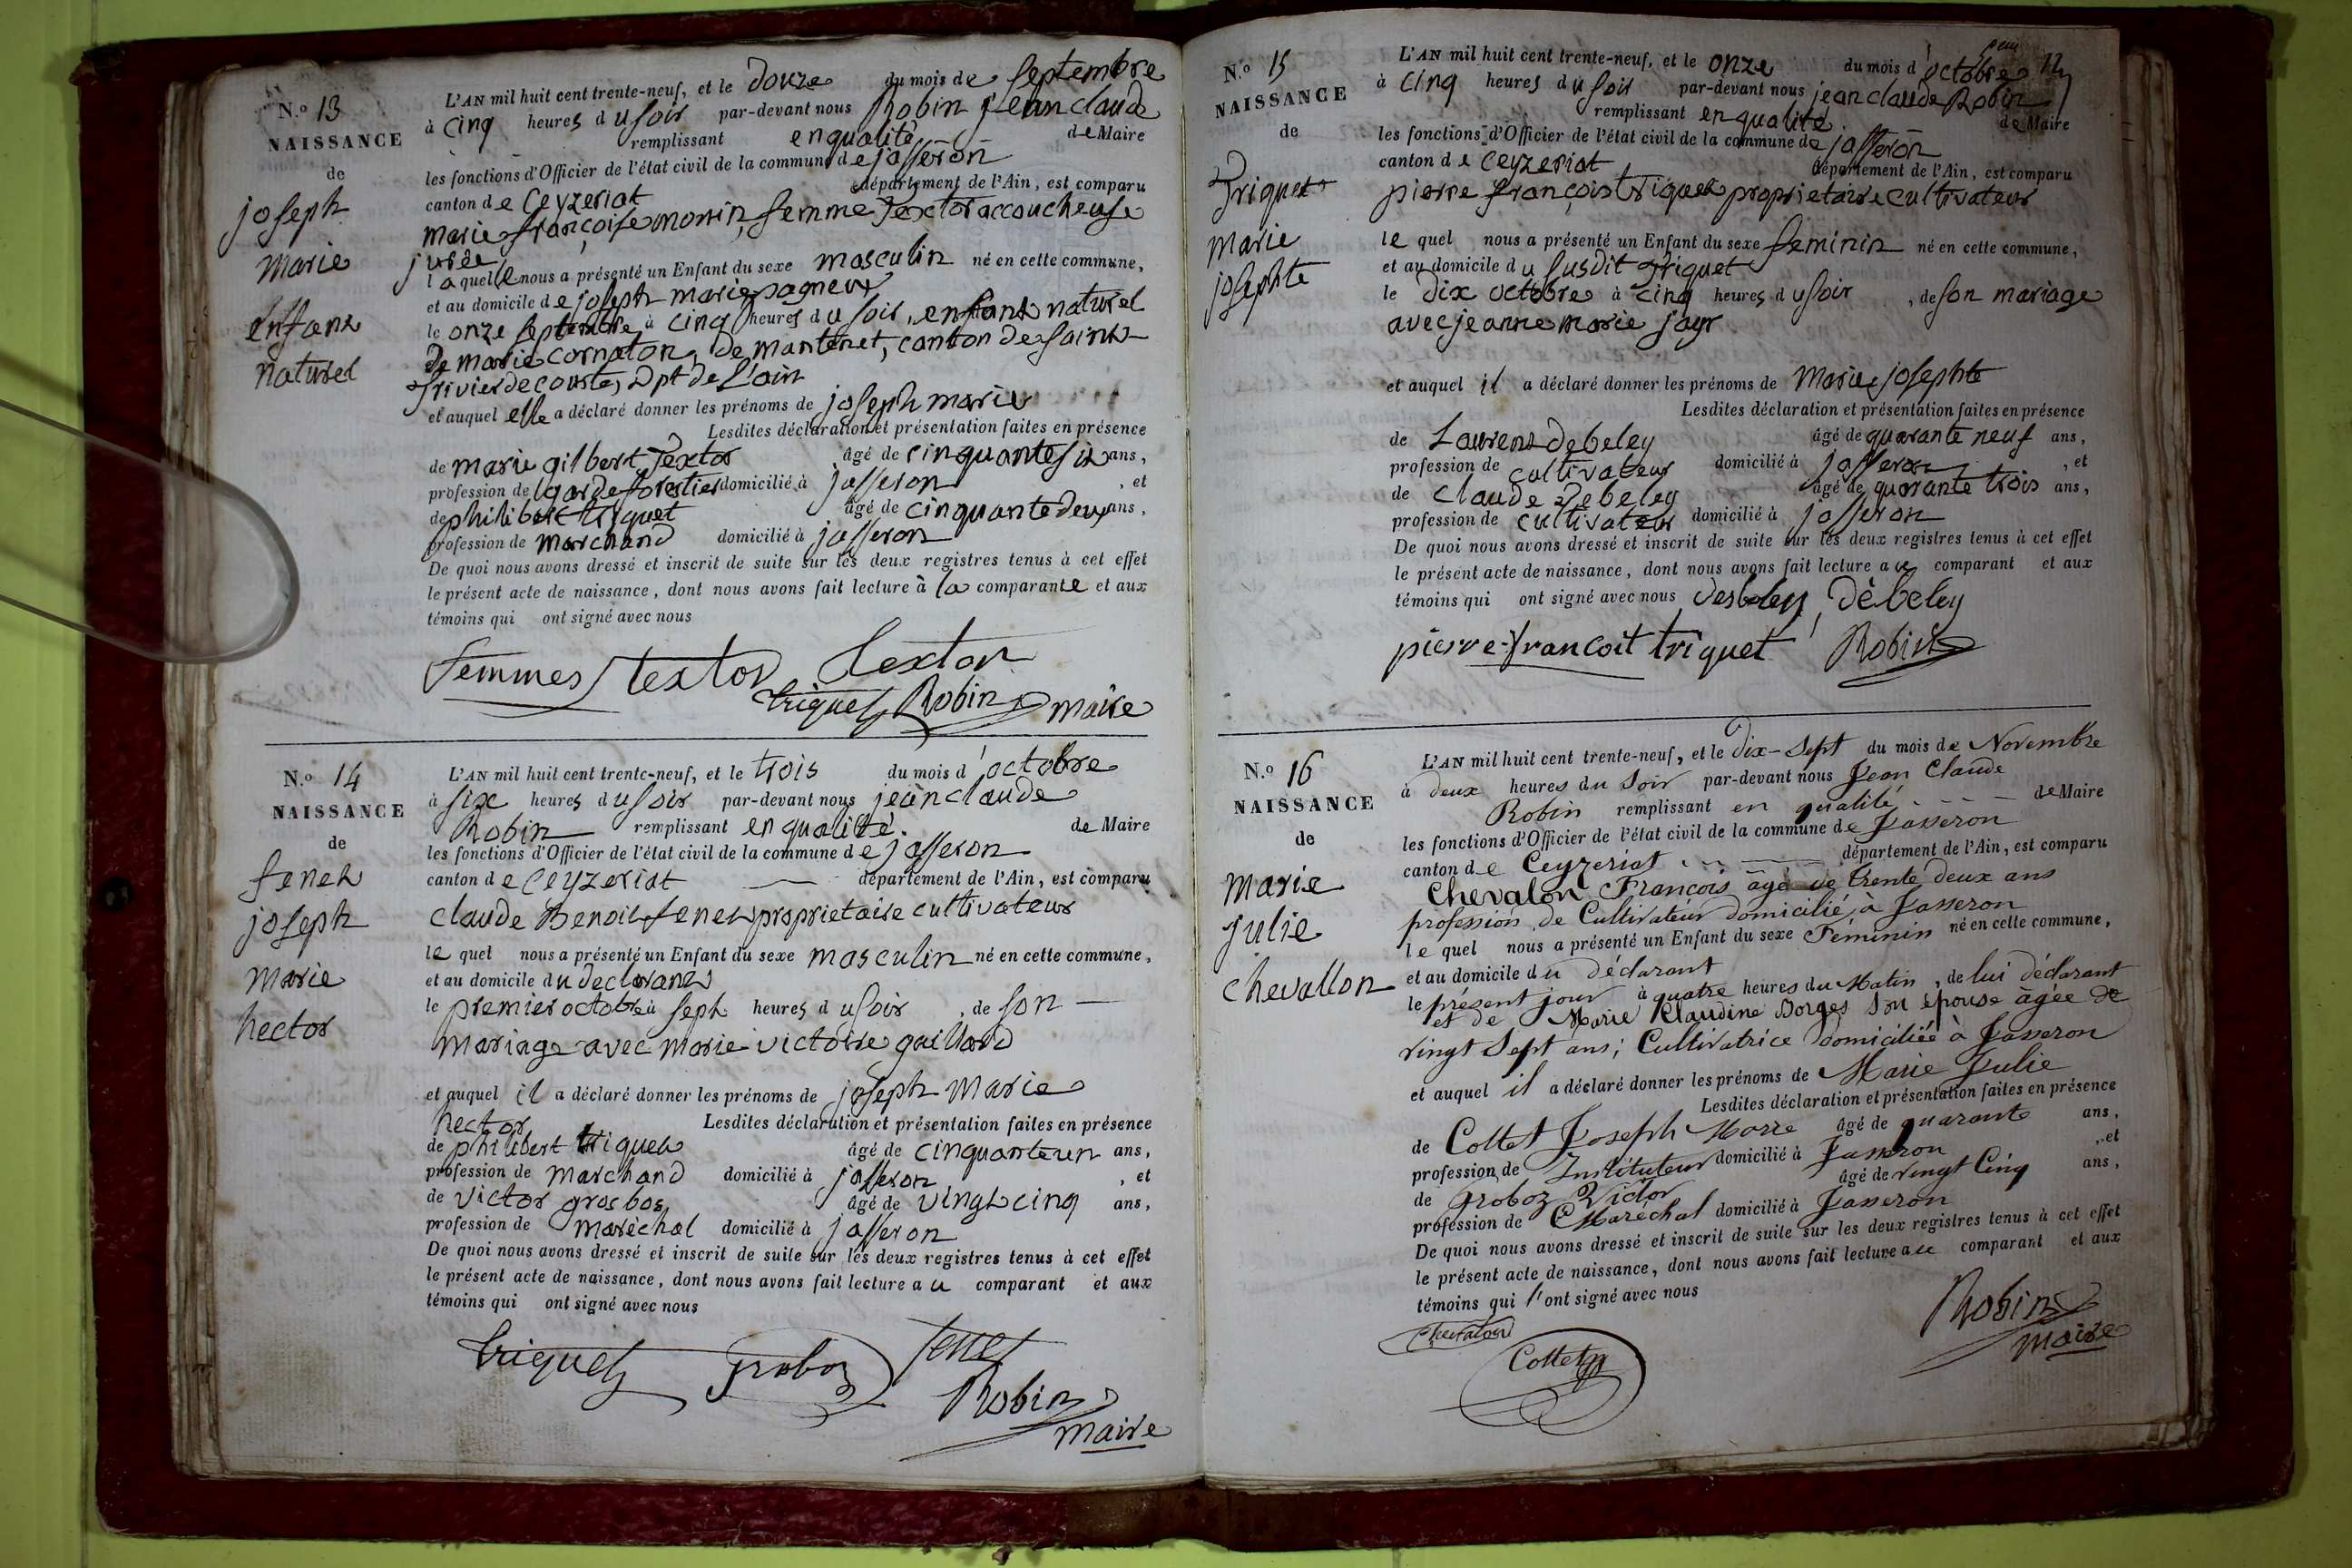 N.o 13
NAISSANCE
de
joseph
marie
enfant
naturel
L'AN mil huit cent trente-neuf, et le douze du mois de septembre
à cinq heures du soir par-devant nous Robin jean claude
remplissant en qualité de Maire
les fonctions d'Officier de l'état civil de la commune de jasseron
canton de Ceyzeriat département de l'Ain, est comparu
marie françoise monin, femme Textor accoucheuse
jurée
laquelle nous a présenté un Enfant du sexe masculin né en cette commune,
et au domicile de joseph marie pagneux
le onze septembre à cinq heures du soir, enfant naturel
de marie cornaton, de mantenet, canton de saint-
trivier de courtes, Dpt de L'ain
et auquel elle a déclaré donner les prénoms de joseph marie
Lesdites déclaration et présentation faites en présence
de marie gilbert Textor âgé de cinquante six ans,
profession de garde forestier domicilié à jasseron , et
de philibert triquet âgé de cinquante deux ans,
profession de marchand domicilié à jasseron
De quoi nous avons dressé et inscrit de suite sur les deux registres tenus à cet effet
le présent acte de naissance, dont nous avons fait lecture à la comparante et aux
témoins qui ont signé avec nous
femmes textor textor
triquet Robin maire
N.o 14
NAISSANCE
de
fenet
joseph
marie
hector
L'AN mil huit cent trente-neuf, et le trois du mois d'octobre
à six heures du soir par-devant nous jean claude
Robin remplissant en qualité de Maire
les fonctions d'Officier de l'état civil de la commune de jasseron
canton de Ceyzeriat département de l'Ain, est comparu
claude Benoit fenet proprietaire cultivateur
le quel nous a présenté un Enfant du sexe masculin né en cette commune,
et au domicile du declarant
le premier octobre à sept heures du soir , de son
mariage avec marie victoire gaillard
et auquel il a déclaré donner les prénoms de joseph marie
hector Lesdites déclaration et présentation faites en présence
de philibert triquet âgé de cinquante un ans,
profession de marchand domicilié à jasseron , et
de victor grosbos âgé de vingt cinq ans,
profession de maréchal domicilié à jasseron
De quoi nous avons dressé et inscrit de suite sur les deux registres tenus à cet effet
le présent acte de naissance, dont nous avons fait lecture au comparant et aux
témoins qui ont signé avec nous
triquet groboz fenet
Robin
maire
12
N.o 15
NAISSANCE
de
Triquet
marie
josephte
L'AN mil huit cent trente-neuf, et le onze du mois d'octobre
à cinq heures du soir par-devant nous jean claude Robin
remplissant en qualité de Maire
les fonctions d'Officier de l'état civil de la commune de jasseron
canton de Ceyzeriat département de l'Ain, est comparu
pierre françois triquet proprietaire cultivateur
le quel nous a présenté un Enfant du sexe feminin né en cette commune,
et au domicile du susdit triquet
le dix octobre à cinq heures du soir , de son mariage
avec jeanne marie jayr
et auquel il a déclaré donner les prénoms de Marie josephte
Lesdites déclaration et présentation faites en présence
de Laurent debeley âgé de quarante neuf ans,
profession de cultivateur domicilié à jasseron , et
de claude Debeley âgé de quarante trois ans,
profession de cultivateur domicilié à jasseron
De quoi nous avons dressé et inscrit de suite sur les deux registres tenus à cet effet
le présent acte de naissance, dont nous avons fait lecture au comparant et aux
témoins qui ont signé avec nous desbeley, Dèbeley
pierre-francoit triquet Robin
N.o 16
NAISSANCE
de
marie
julie
chevallon
L'AN mil huit cent trente-neuf, et le Dix-Sept du mois de Novembre
à deux heures du Soir par-devant nous Jean Claude
Robin remplissant en qualité de Maire
les fonctions d'Officier de l'état civil de la commune de Jasseron
canton de Ceyzeriat département de l'Ain, est comparu
Chevalon François âgé de trente deux ans
profession de Cultivateur domicilié à Jasseron
le quel nous a présenté un Enfant du sexe Feminin né en cette commune,
et au domicile du Déclarant
le présent jour à quatre heures du Matin , de lui déclarant
et de Marie Klaudine Borges son épouse âgée de
vingt Sept ans; Cultivatrice domiciliée à Jasseron
et auquel il a déclaré donner les prénoms de Marie Julie
Lesdites déclaration et présentation faites en présence
de Collet Joseph Marie âgé de quarante ans,
profession de Instituteur domicilié à Jasseron , et
de Groboz Victor âgé de vingt Cinq ans,
profession de Maréchal domicilié à Jasseron
De quoi nous avons dressé et inscrit de suite sur les deux registres tenus à cet effet
le présent acte de naissance, dont nous avons fait lecture au comparant et aux
témoins qui l'ont signé avec nous
Chevalon Robin
Collet maire